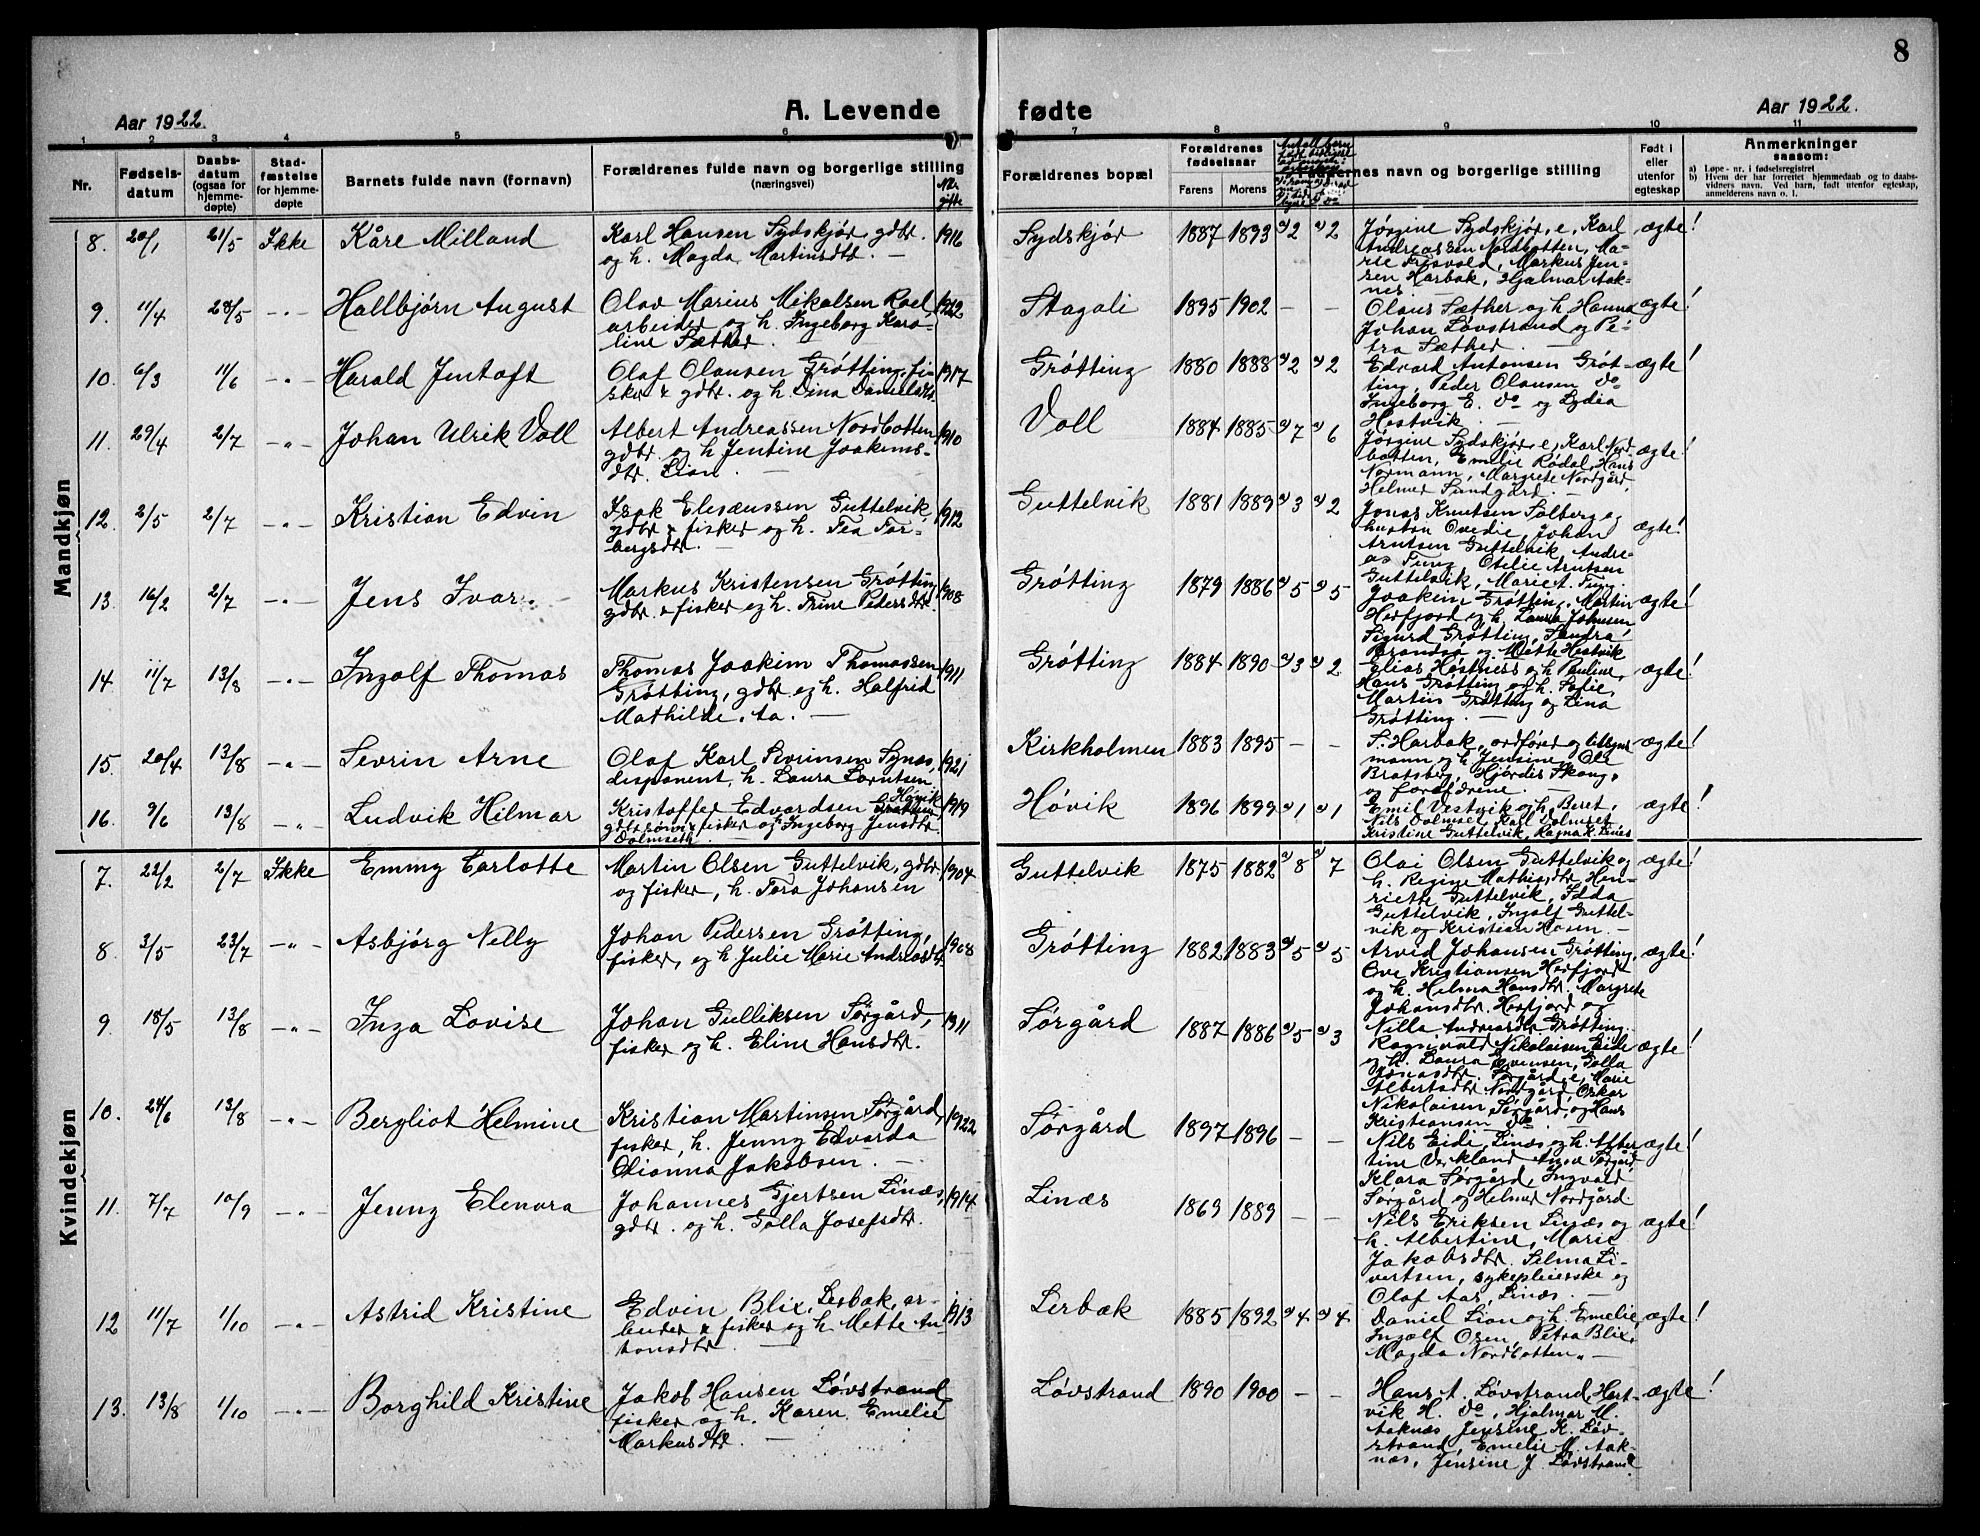 8
A. Levende fødte
Aar 1922.
Aar 1922.
1 2 3 4 5 6 7 8 9 10 11
Nr.
Fødsels-
datum
Daabs-
datum
(ogsaa for
hjemme-
døpte)
Stad-
fæstelse
for hjemme-
døpte
Barnets fulde navn (fornavn)
Forældrenes fulde navn og borgerlige stilling
(næringsvei)
gifte
Forældrenes bopæl
Forældrenes
fødselsaar
Farens Morens
Faddernes navn og borgerlige stilling
Født i
eller
utenfor
egteskap
Anmerkninger
saasom:
a) Løpe-nr. i fødselsregistret
b) Hvem der har forrettet hjemmedaab og to daabs-
vidners navn. Ved barn, født utenfor egteskap,
anmelderens navn o. l.
Mandkjøn
8. 20/1 21/5 Ikke Kåre Milland
Karl Hansen Sydskjør, gdbr.
og h. Magda Martinsdtr. —
1916 Sydskjør 1887 1893 a) 2 a) 2
Jørgine Sydskjør, e, Karl
Andreassen Nordbotten, Ma-
rie Frisvold, Markus Jen-
sen Harbak, Hjalmar Aak-
nes —
ægte!
9. 11/4 28/5 -"- Hallbjørn August
Olav Marius Mikalsen Roel
arbeider og h. Ingeborg Karo-
line Sæther. —
1922 Stagali 1895 1902 — —
Olaus Sæther og h. Hanna
Johan Løvstrand og Pe-
tra Sæther. —
ægte!
10. 6/3 11/6 -"- Harald Jentoft
Olaf Olausen Grøtting, fi-
sker & gdbr. og h. Dina Danielsdtr.
1917 Grøtting 1880 1888 a) 2 a) 2
Edvard Antonsen Grøt-
ting, Peder Olausen do
Ingeborg E. do og Lydia
Hestvik. —
ægte!
11. 29/4 2/7 -"- Johan Ulrik Voll
Albert Andreassen Nordbotten
gdbr. og h Jentine Joakims-
dtr. Lian. —
1910 Voll 1884 1885 a) 7 a) 6
Jørgine Sydskjør, e, Karl Nord
botten, Emelie Rødal, Hans
Normann, Margrete Nordgård,
Helmer Sundgård. —
ægte!
12. 2/5 2/7 -"- Kristian Edvin
Isak Elesæussen Guttelvik,
gdbr & fisker og h. Tea Tor-
bergsdtr. —
1912 Guttelvik 1881 1889 a) 3 a) 2
Jonas Knutsen Solberg og
hustru Ovedie, Johan
Arntsen Guttelvik, Andre-
as Tung, Otelie Arntsen
Guttelvik, Marie A. Tung.
ægte!
13. 16/2 2/7 -"- Jens Ivar.
Markus Kristensen Grøtting
gdbr & fisker og h. Trine Pedersdtr.
1908 Grøtting 1879 1886 a) 5 a) 5
Joakim Grøtting, Martin
Herfjord og h. Laura Johnsen
Sigurd Grøtting, Sandra
Brandsø og Mette Hestvik
ægte!
14. 11/7 13/8 -"- Ingolf Thomas
Thomas Joakim Thomassen
Grøtting, gdbr og h. Halfrid
Mathilde, Aa. —
1911 Grøtting 1884 1890 a) 3 a) 2
Elias Høstness og h Pauline,
Hans Grøtting og h. Sofie,
Martin Grøtting og Lina
Grøtting. —
ægte!
15. 20/4 13/8 -"- Sevrin Arne
Olaf Karl Sevrinsen Synes,
disponent, h. Laura Larntsen
1921 Kirkholmen 1883 1895 — —
S. Harbak, ordfører og
mann og h Jensine, Ole
Bratsberg, Hjørdis Skong,
og foræfdrene. —
ægte!
16. 9/6 13/8 -"- Ludvik Hilmar
Kristoffer Edvardsen Høvik
gdbr.sønn & fisker og Ingeborg Jensdtr.
Dolmseth.
1919 Høvik 1896 1899 a) 1 a) 1
Emil Vestvik og h. Beret,
Nils Dolmset, Karl Dolmset
Kristine Guttelvik, Ragna K. Linæs
ægte!
Kvindekjøn
7. 22/2 2/7 Ikke Emmy Carlotte
Martin Olsen Guttelvik, gdbr
og fisker, h. Tora Johansen
1904 Guttelvik 1875 1882 a) 8 a) 7
Olai Olsen Guttelvik og
h. Regine Mathisdtr Hen-
riette Guttelvik, Edda
Guttelvik, Ingolf Guttel-
vik og Kristian Hosen. —
ægte!
8. 3/5 23/7 -"- Asbjørg Nelly
Johan Pedersen Grøtting,
fisker, og h. Julie Marie Andreasdtr.
1908 Grøtting 1882 1883 a) 5 a) 5
Arvid Johansen Grøtting,
Ove Kristiansen Herfjord
og h. Helma Hansdtr. Margrete
Johansdtr. Herfjord og
Nilla Andreasdtr. Grøtting.
ægte!
9. 18/5 13/8 -"- Inga Lovise
Johan Gulliksen Sørgård,
fisker og h. Eline Hansdtr.
1911 Sørgård 1887 1886 a) 5 a) 3
Ragnvald Nikolaisen Eide
og h. Laura Evensen, Golla
Jonasdtr. Sørgård, e, Marie
Albertsdtr Nordgård, Oskar
Nikolaisen Sørgård, og Hans
Kristiansen do. —
ægte!
10. 24/6 13/8 -"- Bergliot Helmine
Kristian Martinsen Sørgård,
fisker, h. Jenny Edvarda
Dianna Jakobsen. —
1922 Sørgård 1897 1896 — —
Nils Eidi, Linæs og h. After
tine Verkland Anna Sørgård,
Klara Sørgård, Ingvald
Sørgård og Helmer Nordgård.
ægte!
11. 7/7 10/9 -"- Jenny Elenora
Johannes Gjertsen Linæs,
gdbr. og h. Golla Josefsdtr.
1914 Linæs 1869 1889 — —
Nils Eriksen Linæs og
h. Albertine, Marie
Jakobsdtr. Selma Si-
vertsen, sykepleierske og
Olaf Aas, Linæs. —
ægte!
12 11/7 1/10 -"- Astrid Kristine
Edvin Blix, Lerbak, ar-
beider & fisker og h Mette An-
tonsdtr. —
1913 Lerbak 1885 1892 a) 4 a) 4
Daniel Lian og h. Emelie,
Ingolf Osen, Petra Blix,
Magda Nordbotten. —
ægte!
13. 13/8 1/10 -"- Borghild Kristine
Jakob Hansen Løvstrand,
fisker og h. Karen Emelie
Markusdtr. —
Løvstrand 1890 1900 — —
Hans A. Løvstrand, Hart-
vik H. do, Hjalmar M.
Aaknæs, Jensine K. Løv-
strand, Emelie M. Aak-
næs, Jensine J. Løvstrand
ægte!